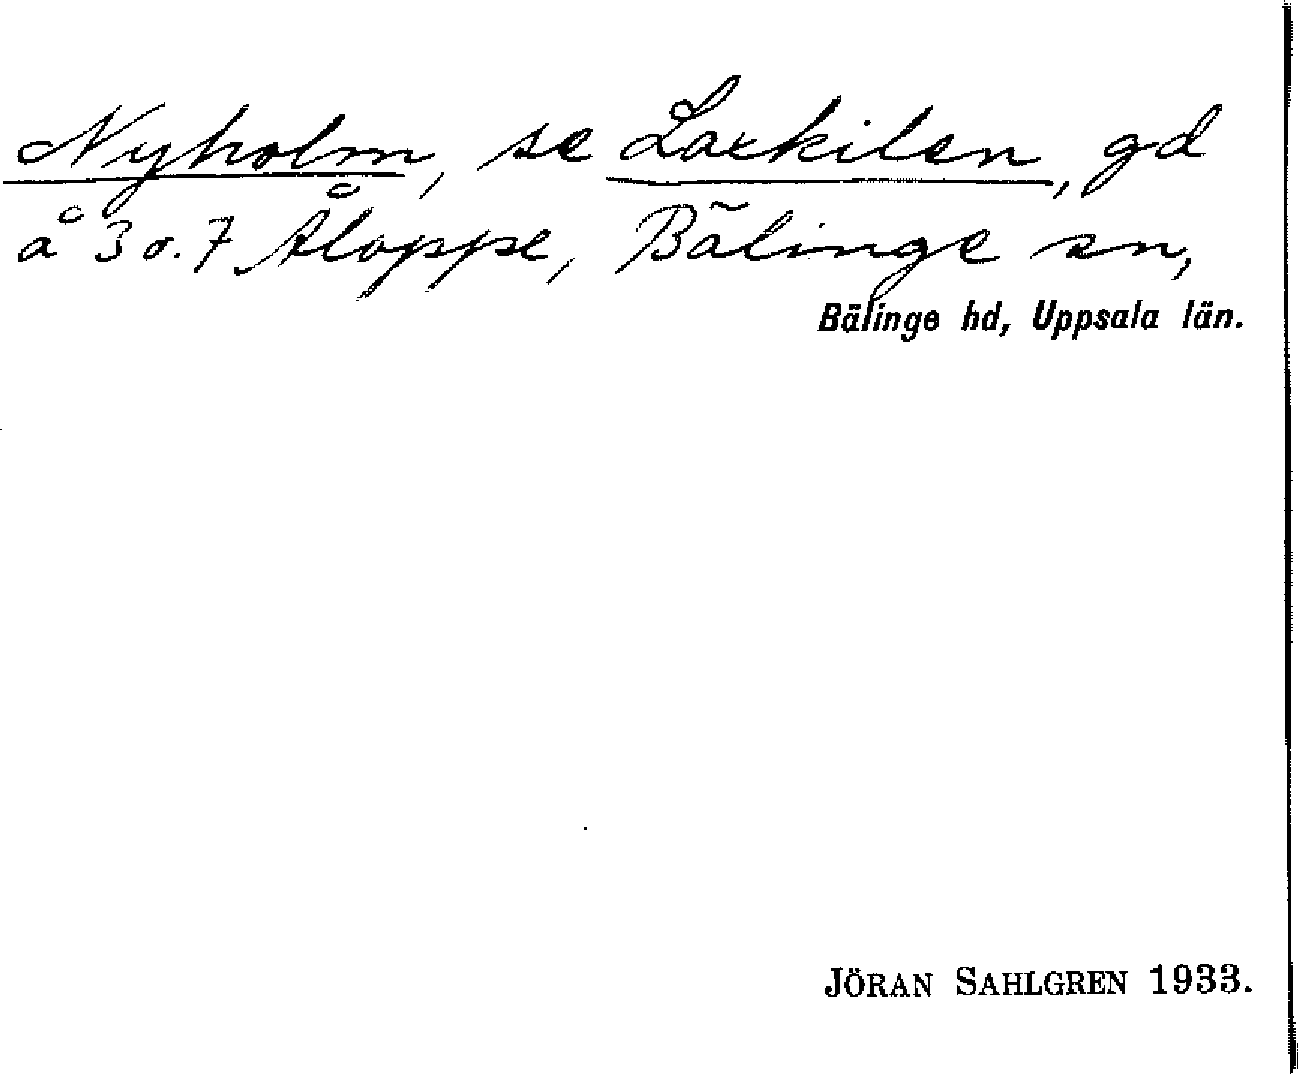 Nyholm, se Laxkilen, gd
å 3 o. 7 Åloppe, Bälinge sn,
Bälinge hd, Uppsala län.
JÖRAN SAHLGREN 1933.